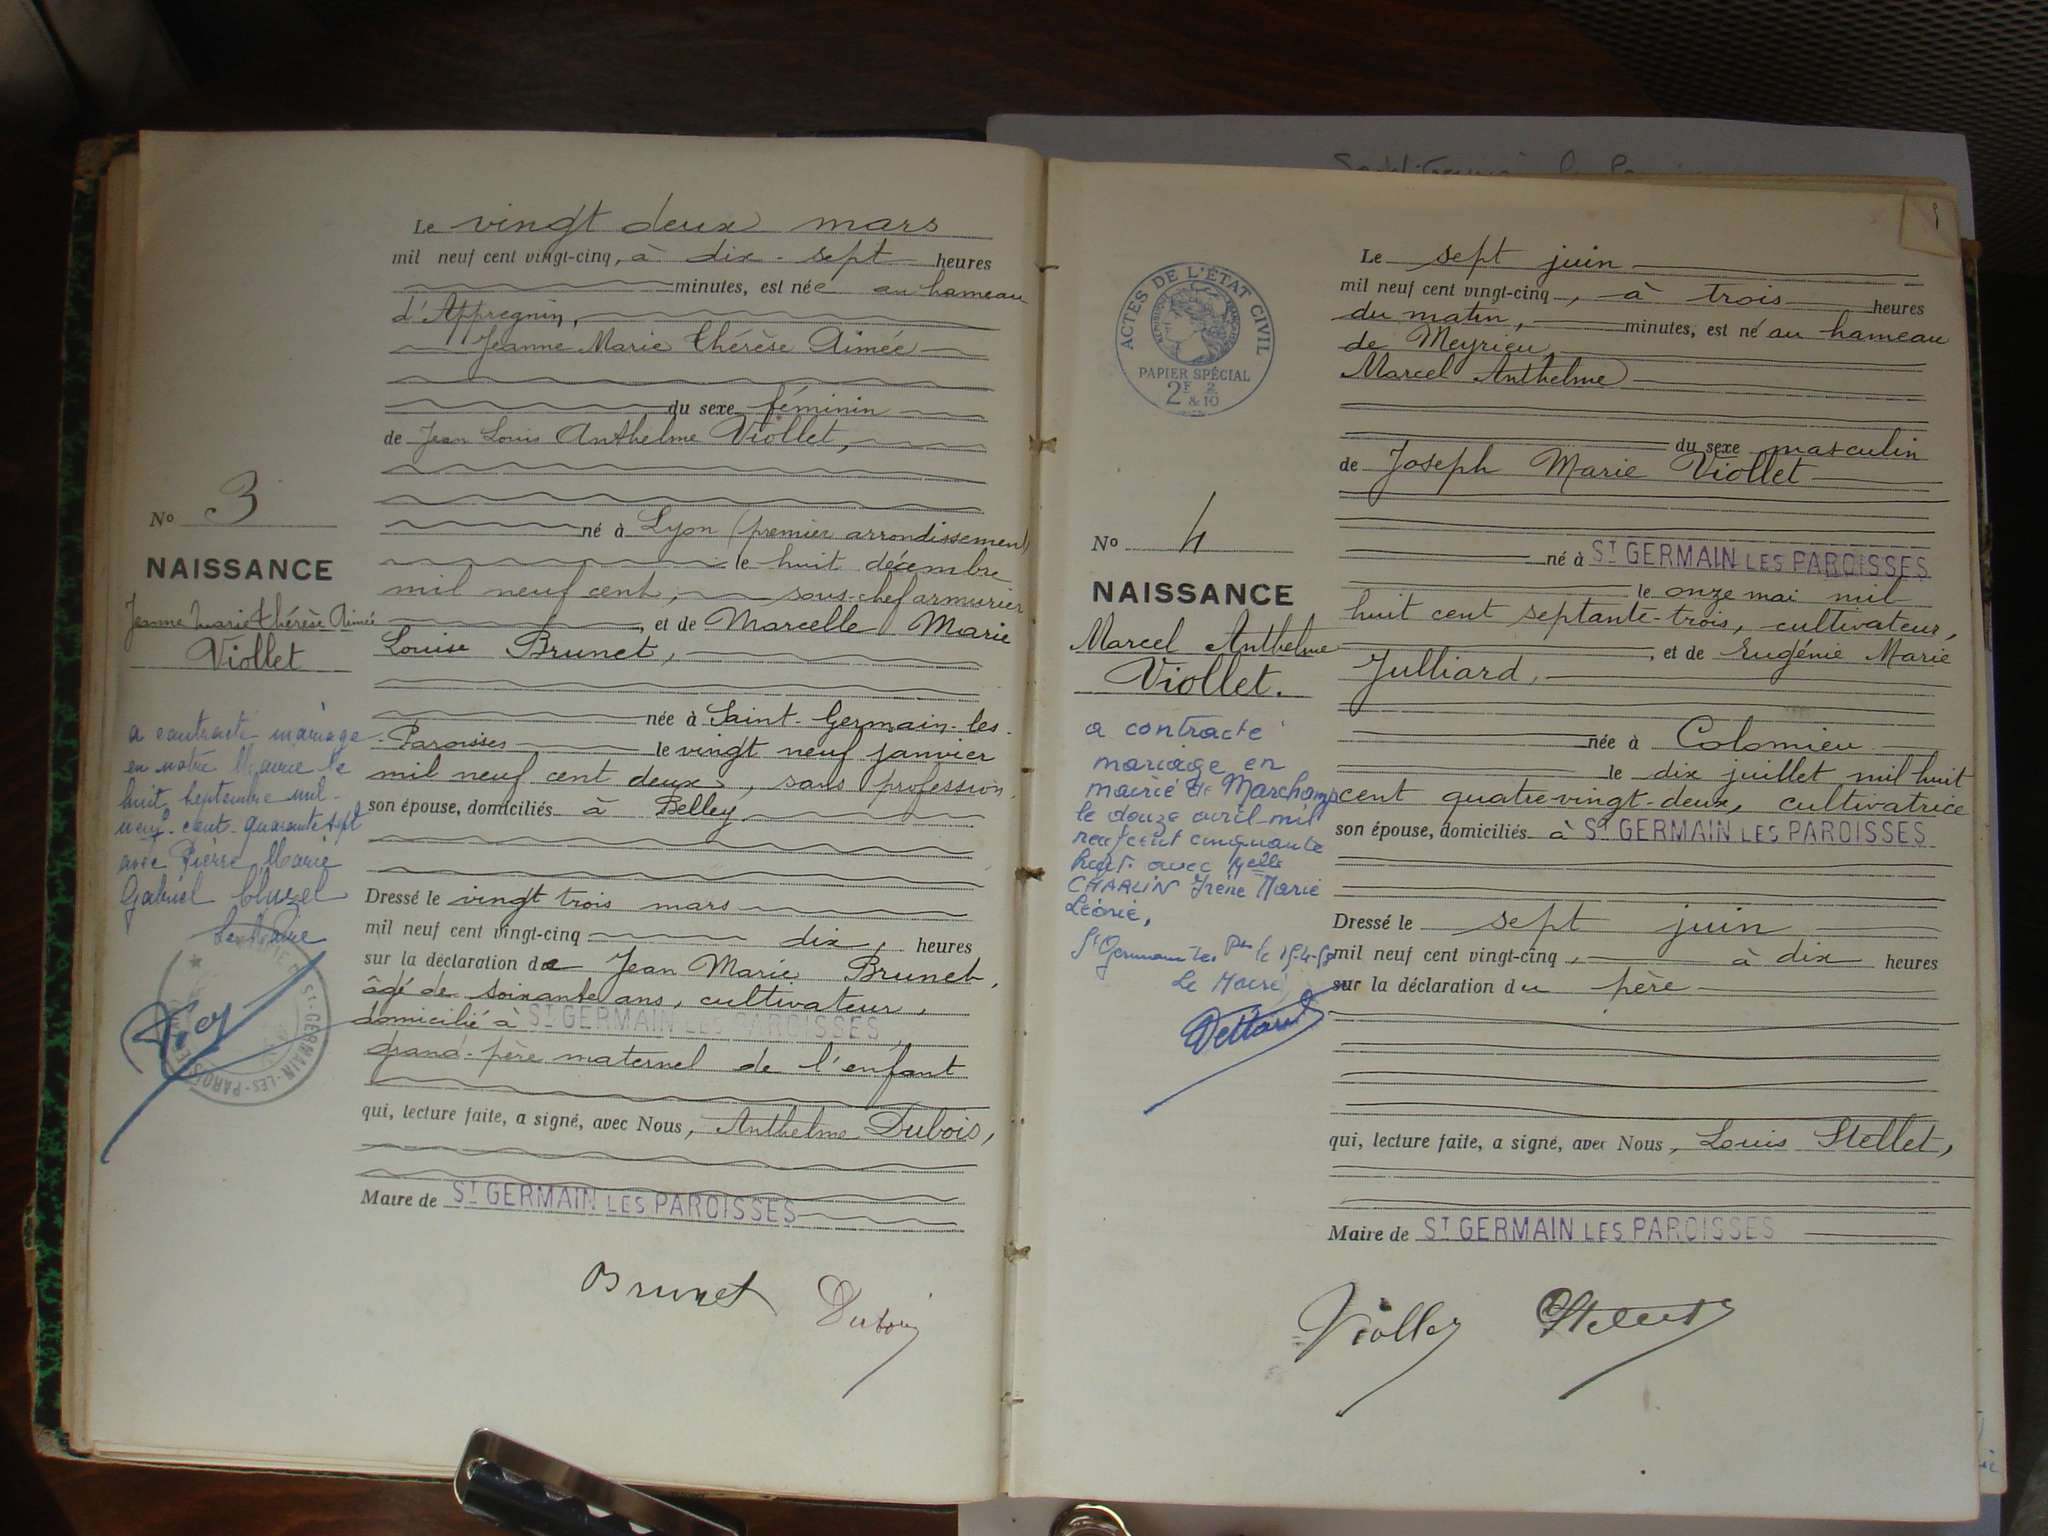 Le vingt deux mars
mil neuf cent vingt-cinq, à dix-sept heures
minutes, est née au hameau
d'Appregnin,
Jeanne Marie Thérèse Aimée
du sexe féminin
de Jean Louis Anthelme Viollet,
né à Lyon (premier arrondissement)
le huit décembre
mil neuf cent, sous-chef armurier
, et de Marcelle Marie
Louise Brunet,
née à Saint-Germain-les-
Paroisses le vingt neuf janvier
mil neuf cent deux, sans profession,
son épouse, domiciliés à Belley
Dressé le vingt trois mars
mil neuf cent vingt-cinq dix, heures
sur la déclaration de Jean Marie Brunet,
âgé de soixante ans, cultivateur,
domicilié à ST GERMAIN LES PAROISSES,
grand-père maternel de l'enfant
qui, lecture faite, a signé, avec Nous, Anthelme Dubois,
Maire de ST GERMAIN LES PAROISSES
Brunet Dubois
No 3
NAISSANCE
Jeanne Marie Thérèse Aimée
Viollet
a contracté mariage
en notre Mairie le
huit Septembre mil-
neuf-cent-quarante sept
avec Pierre Marie
Gabriel Cluzel
Le Maire
ST-GERMAIN-LES-PAROISSES
ACTES DE L'ÉTAT CIVIL
RÉPUBLIQUE FRANÇAISE
PAPIER SPÉCIAL
2F & 2/10
No 4
NAISSANCE
Marcel Anthelme
Viollet.
a contracté
mariage en
mairie de Marchamp
le douze avril mil
neuf cent cinquante
huit avec Melle
CHARLIN Irène Marie
Léonie,
St Germain les Pses le
Le Maire
Le sept juin
mil neuf cent vingt-cinq, à trois heures
du matin, minutes, est né au hameau
de Meyrieu
Marcel Anthelme
du sexe masculin
de Joseph Marie Viollet
né à ST GERMAIN LES PAROISSES
le onze mai mil
huit cent septante-trois, cultivateur,
, et de Eugénie Marie
Julliard,
née à Colomieu
le dix juillet mil huit
cent quatre-vingt-deux, cultivatrice
son épouse, domiciliés à ST GERMAIN LES PAROISSES
Dressé le sept juin
mil neuf cent vingt-cinq, à dix heures
sur la déclaration du père
qui, lecture faite, a signé, avec Nous, Louis Stellet,
Maire de ST GERMAIN LES PAROISSES
Viollet Stellet